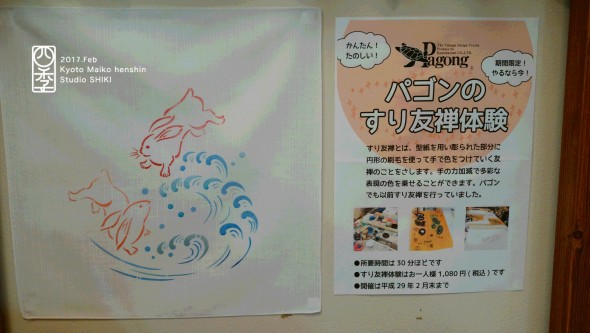 四季
2017.Feb
Kyoto Maiko henshin
Studio SHIKI
かんたん!
たのしい!
Pagong
期間限定!
やるなら今!
パゴンの
すり友禅体験
すり友禅とは、型紙を用い彫られた部分に
円形の刷毛を使って手で色をつけていく友
禅のことをさします。手の力加減で多彩な
表現の色を乗せることができます。パゴン
でも以前すり友禅を行っていました。
●所要時間は30分ほどです
●すり友禅体験はお一人様1,080円(税込)です
●開催は平成29年2月末まで